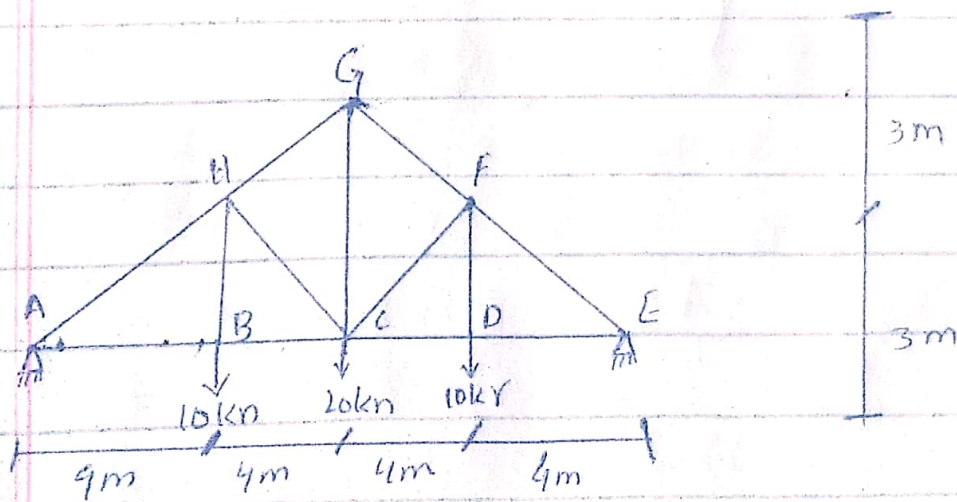 G
3m
H
F
A
B
C
D
E
3m
10kn
20kn
10kr
4m
4m
4m
4m